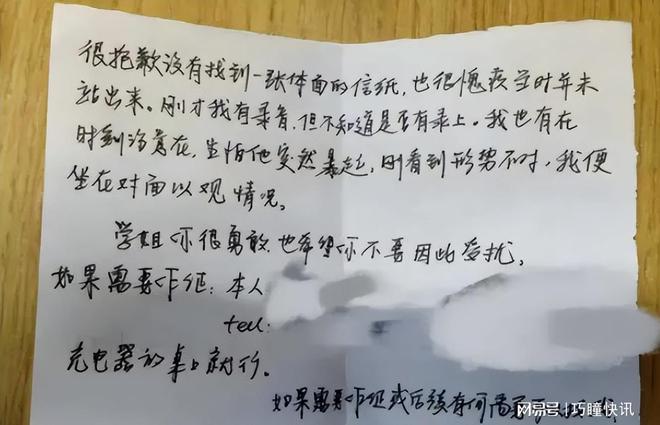 很抱歉没有找到一张体面的信纸，也很愧疚当时并未
站出来。刚才我有录音，但不知道是否有录上。我也有在
时刻注意在，生怕他突然暴起，刚看到形势不对，我便
坐在对面以观情况。
学姐你很勇敢，也希望你不要因此受扰。
如果需要作证：本人
tel:
充电器的桌上就行。
如果需要作证或后续有何需
搜狐号|巧瞳快讯